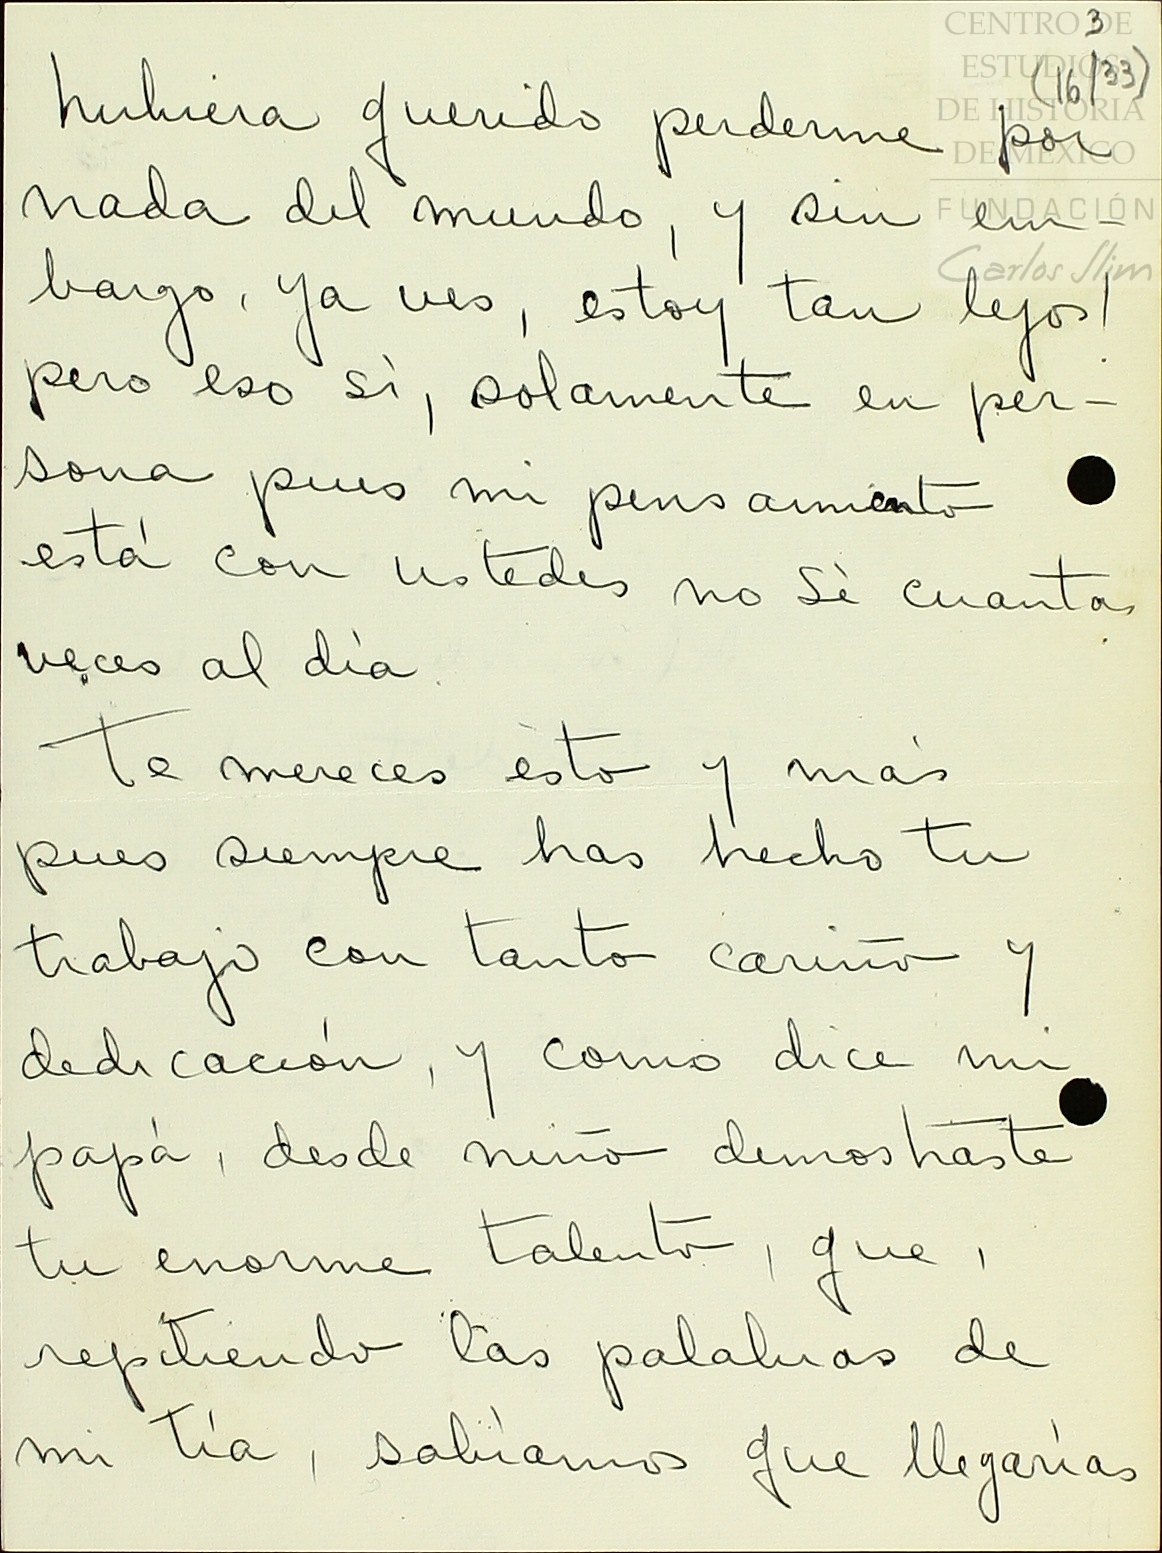 3
(16/33)
CENTRO DE
ESTUDIOS
DE HISTORIA
DE MÉXICO
FUNDACIÓN
Carlos Slim
hubiera querido perderme por
nada del mundo, y sin em-
bargo, ya ves, estoy tan lejos!
pero eso sí, solamente en per-
sona pues mi pensamiento
está con ustedes no sé cuantas
veces al día.
Te mereces esto y más
pues siempre has hecho tu
trabajo con tanto cariño y
dedicación, y como dice mi
papá, desde niño demostraste
tu enorme talento, que,
repitiendo las palabras de
mi tía, sabíamos que llegarías